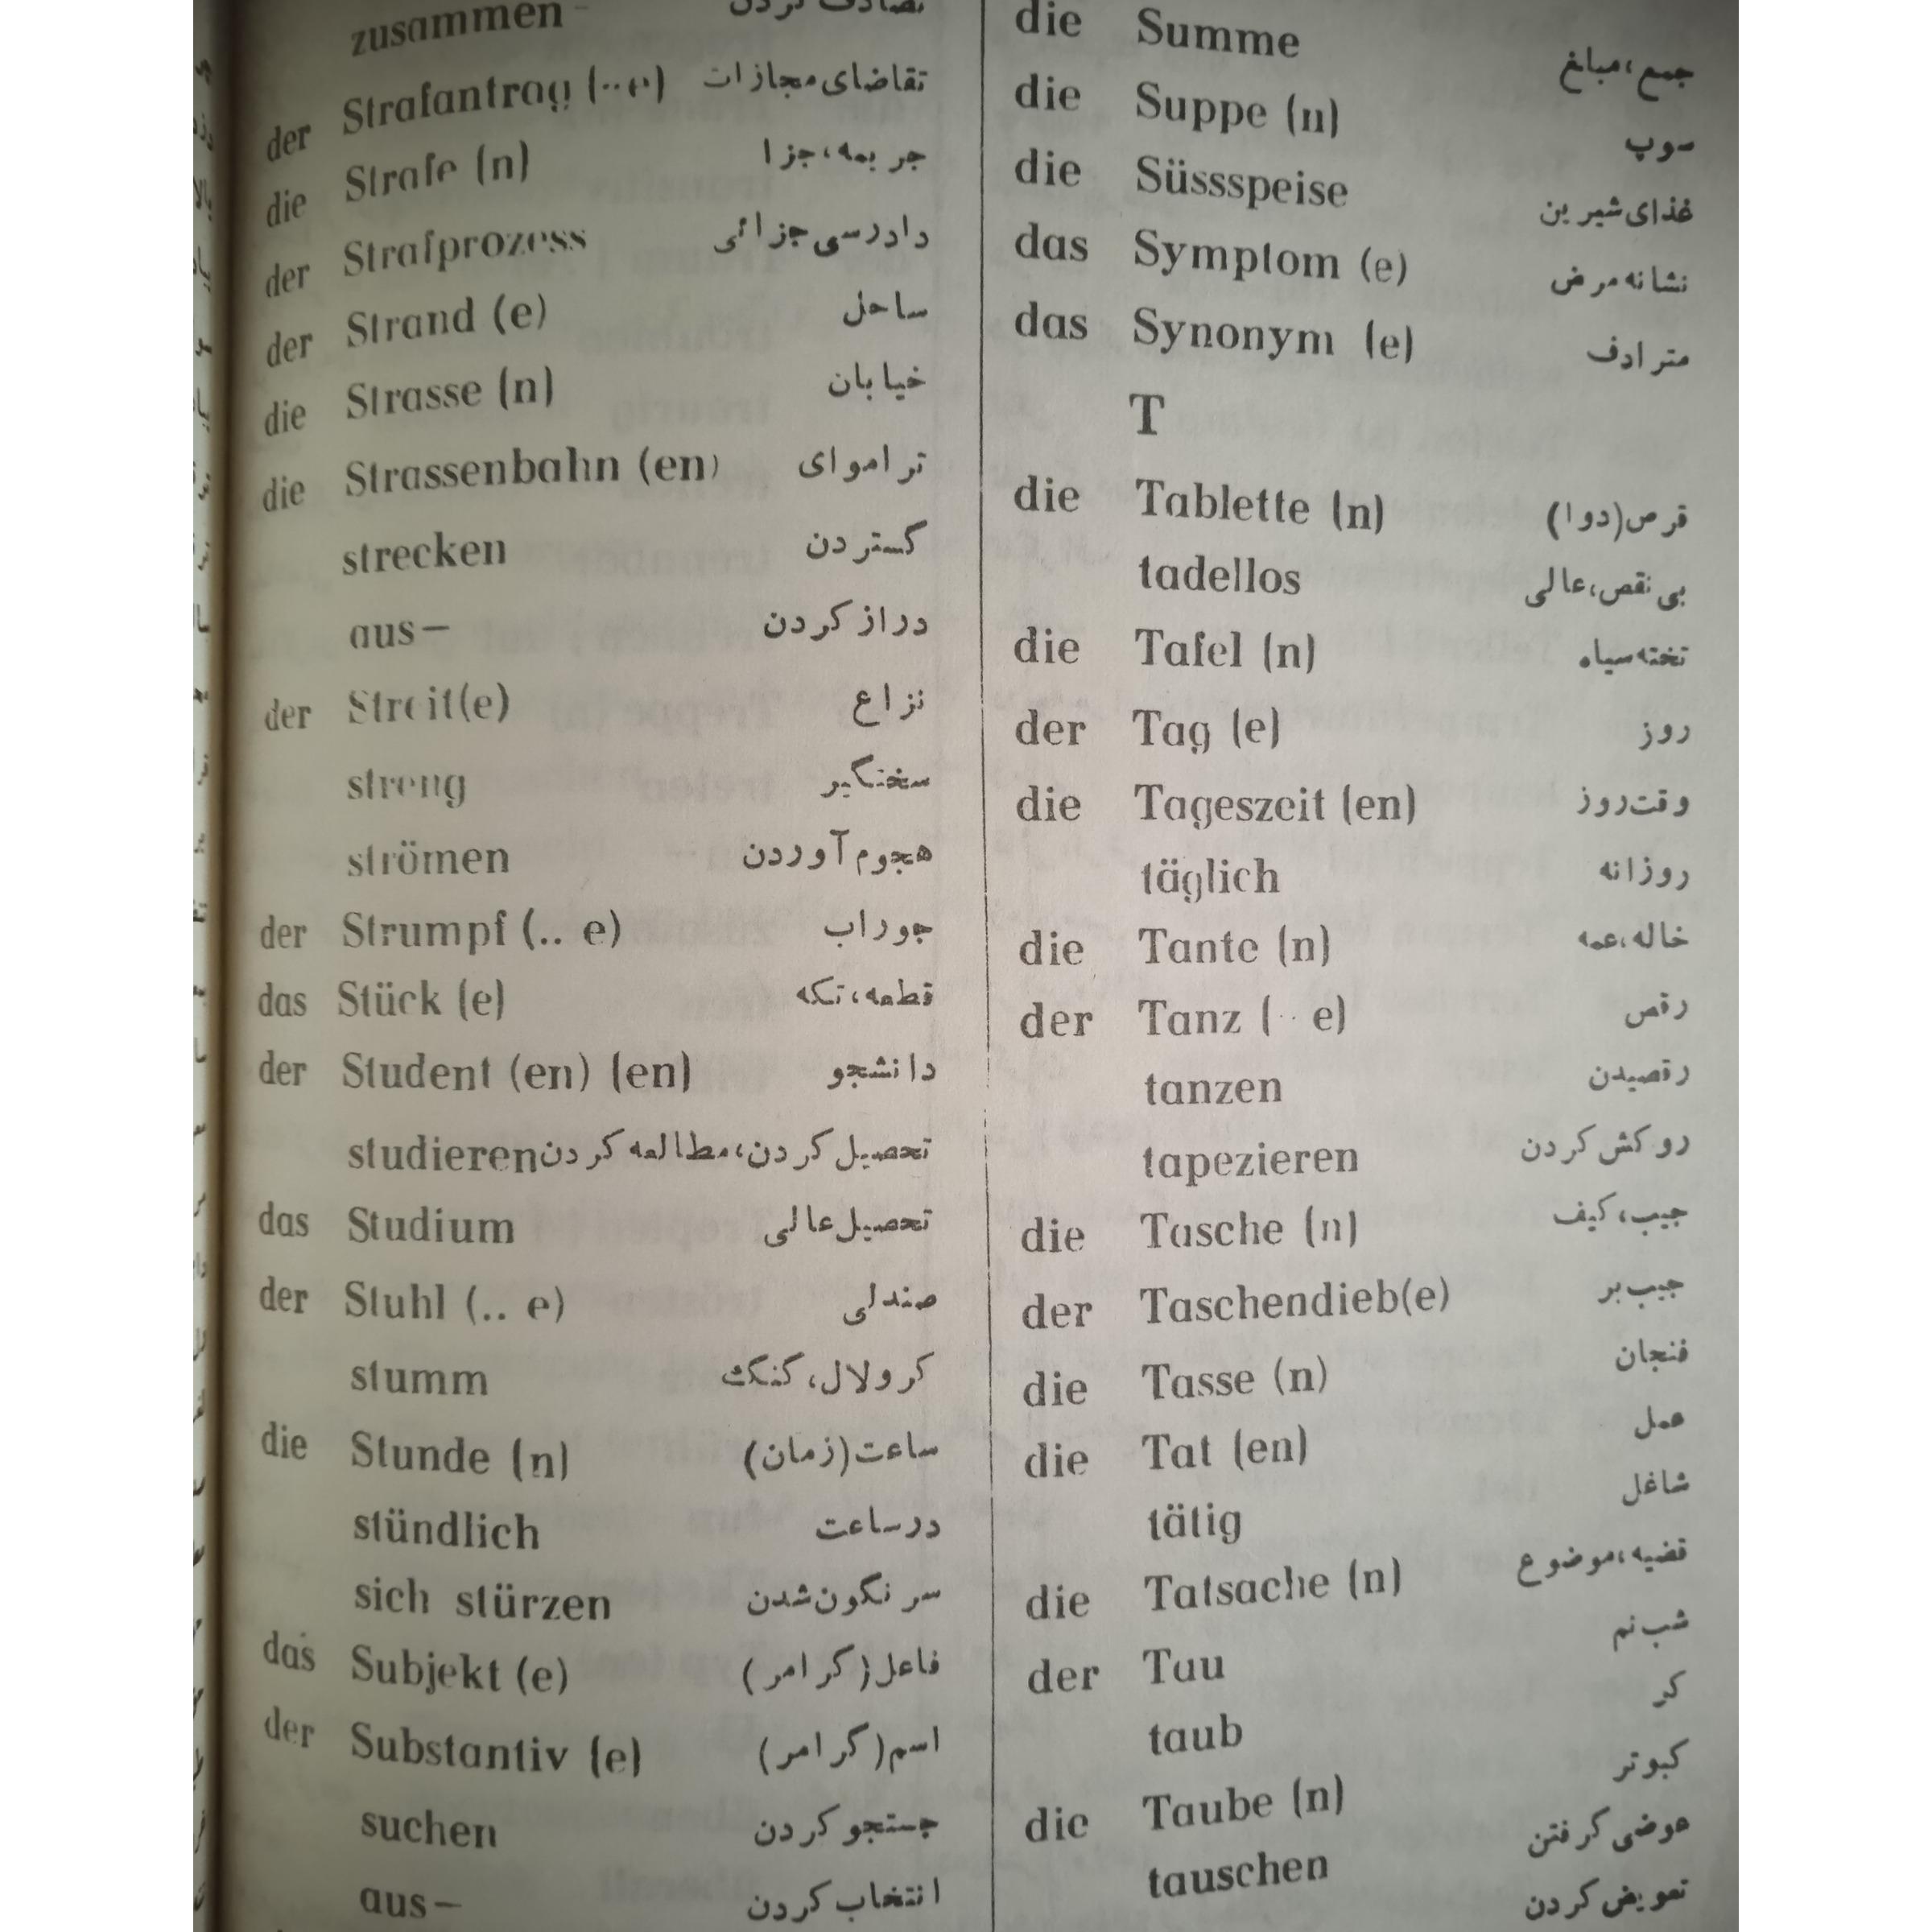 zusammen- تصادف کردن
der Strafantrag (..e) تقاضای مجازات
die Strafe (n) جریمه، جزا
der Strafprozess دادرسی جزائی
der Strand (e) ساحل
die Strasse (n) خیابان
die Strassenbahn (en) تراموای
strecken گستردن
aus– دراز کردن
der Streit(e) نزاع
streng سختگیر
strömen هجوم آوردن
der Strumpf (.. e) جوراب
das Stück (e) قطعه، تکه
der Student (en) (en) دانشجو
studieren تحصیل کردن، مطالعه کردن
das Studium تحصیل عالی
der Stuhl (.. e) صندلی
stumm کرولال، گنگ
die Stunde (n) ساعت (زمان)
stündlich درساعت
sich stürzen سرنگون شدن
das Subjekt (e) فاعل (گرامر)
der Substantiv (e) اسم (گرامر)
suchen جستجو کردن
aus– انتخاب کردن
die Summe جمع، مبلغ
die Suppe (n) سوپ
die Süssspeise غذای شیرین
das Symptom (e) نشانه مرض
das Synonym (e) مترادف
T
die Tablette (n) قرص (دوا)
tadellos بی نقص، عالی
die Tafel (n) تخته سیاه
der Tag (e) روز
die Tageszeit (en) وقت روز
täglich روزانه
die Tante (n) خاله، عمه
der Tanz (.. e) رقص
tanzen رقصیدن
tapezieren روکش کردن
die Tasche (n) جیب، کیف
der Taschendieb(e) جیب بر
die Tasse (n) فنجان
die Tat (en) عمل
tätig شاغل
die Tatsache (n) قضیه، موضوع
der Tau شب نم
taub کر
die Taube (n) کبوتر
tauschen عوضی گرفتن
تعویض کردن